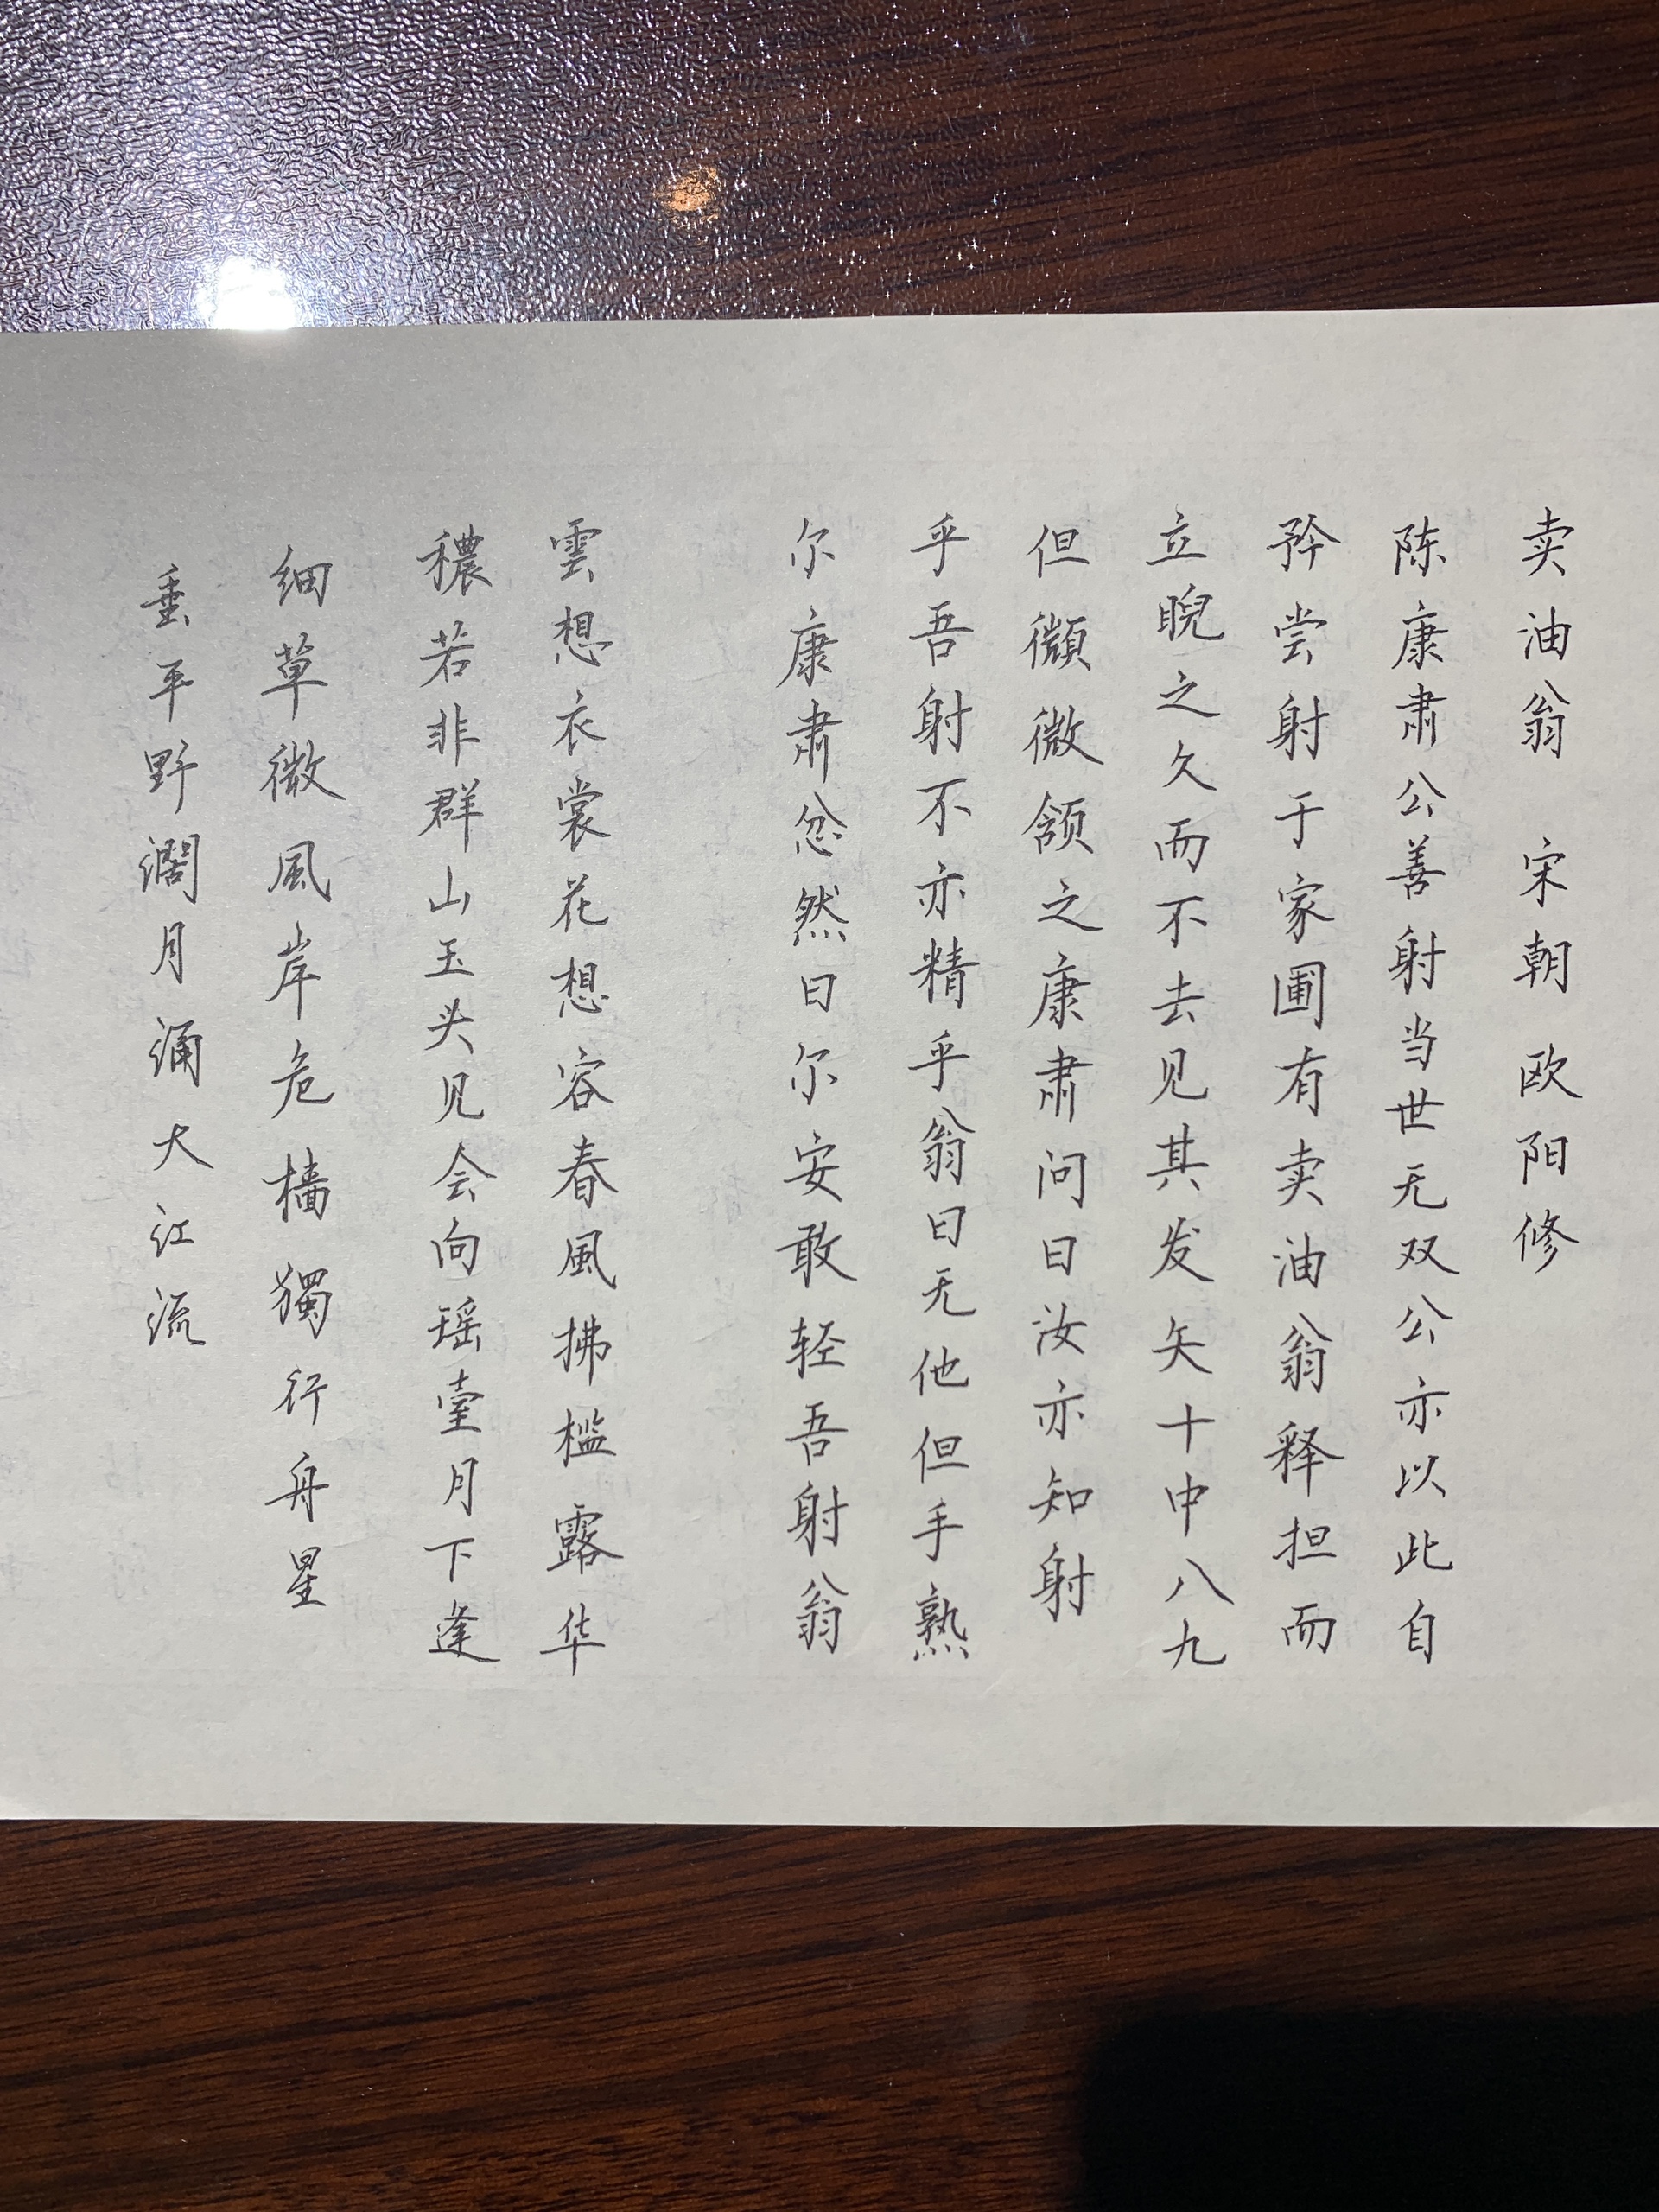 卖油翁 宋朝 欧阳修
陈康肃公善射当世无双公亦以此自
矜尝射于家圃有卖油翁释担而
立睨之久而不去见其发矢十中八九
但微颔之康肃问曰汝亦知射
乎吾射不亦精乎翁曰无他但手熟
尔康肃忿然曰尔安敢轻吾射翁
雲想衣裳花想容春風拂槛露华
穠若非群山玉头见会向瑶臺月下逢
细草微風岸危樯獨行舟星
垂平野濶月涌大江流